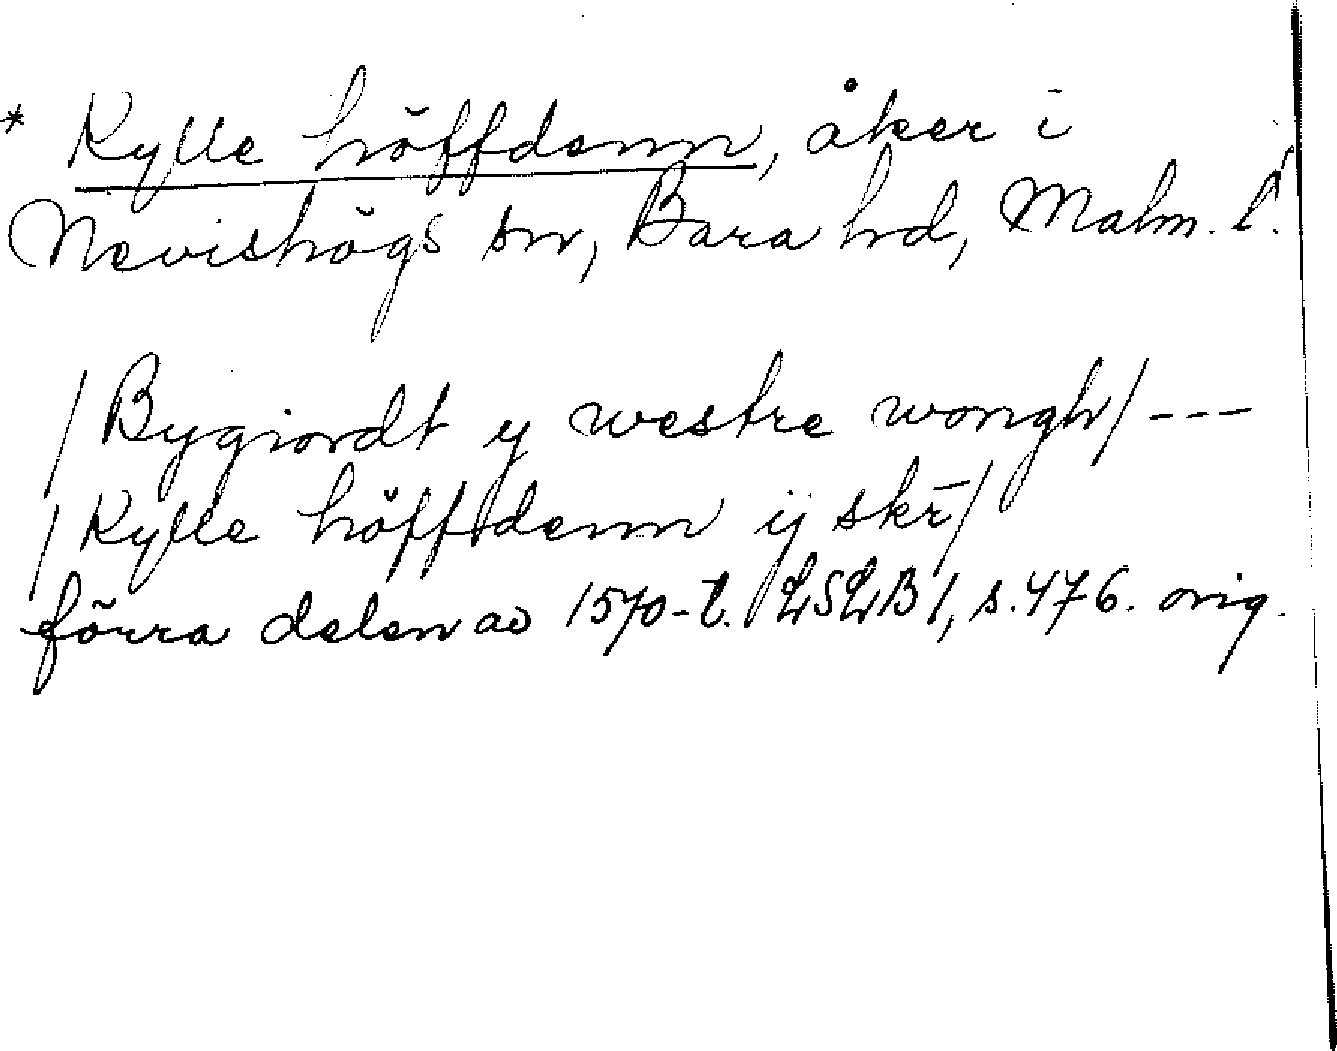 * Kylle höffdenn, åker i
Nevishögs sn, Bara hd, Malm. l.
/Bygiordt y westre wongh/ ---
/Kylle höffdenn ij skr̄/
förra delen av 1570-t. LSLB 1, s. 476. orig.